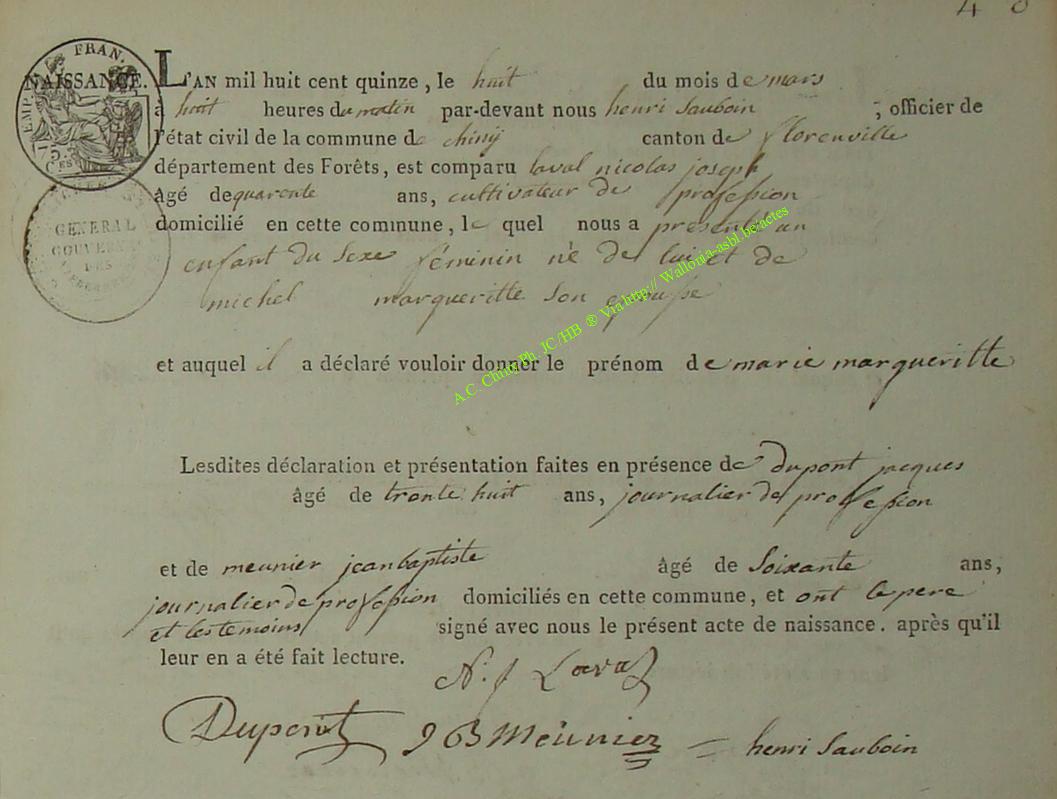 4 8
FRAN.
NAISSANCE. L'AN mil huit cent quinze, le huit du mois de mars
a huit heures du matin par-devant nous henri Sauboin, officier de
l'état civil de la commune de chiny canton de florenville
département des Forêts, est comparu laval nicolas joseph
âgé de quarente ans, cultivateur de profession
domicilié en cette commune, le quel nous a presenté un
enfant du sexe féminin né de lui et de
michel margueritte son epouse
et auquel il a déclaré vouloir donner le prénom de marie margueritte
Lesdites déclaration et présentation faites en présence de dupont jacques
âgé de trente huit ans, journalier de profession
et de meunier jean baptiste âgé de Soixante ans,
journalier de profession domiciliés en cette commune, et ont le pere
et les temoins signé avec nous le présent acte de naissance. après qu'il
leur en a été fait lecture.
N. j Laval
Dupont J B Meùnier henri Sauboin
GENERAL
GOUVERN
A.C. Chiny Ph. JC/HB ® Via http:// Wallonia-asbl.be/actes